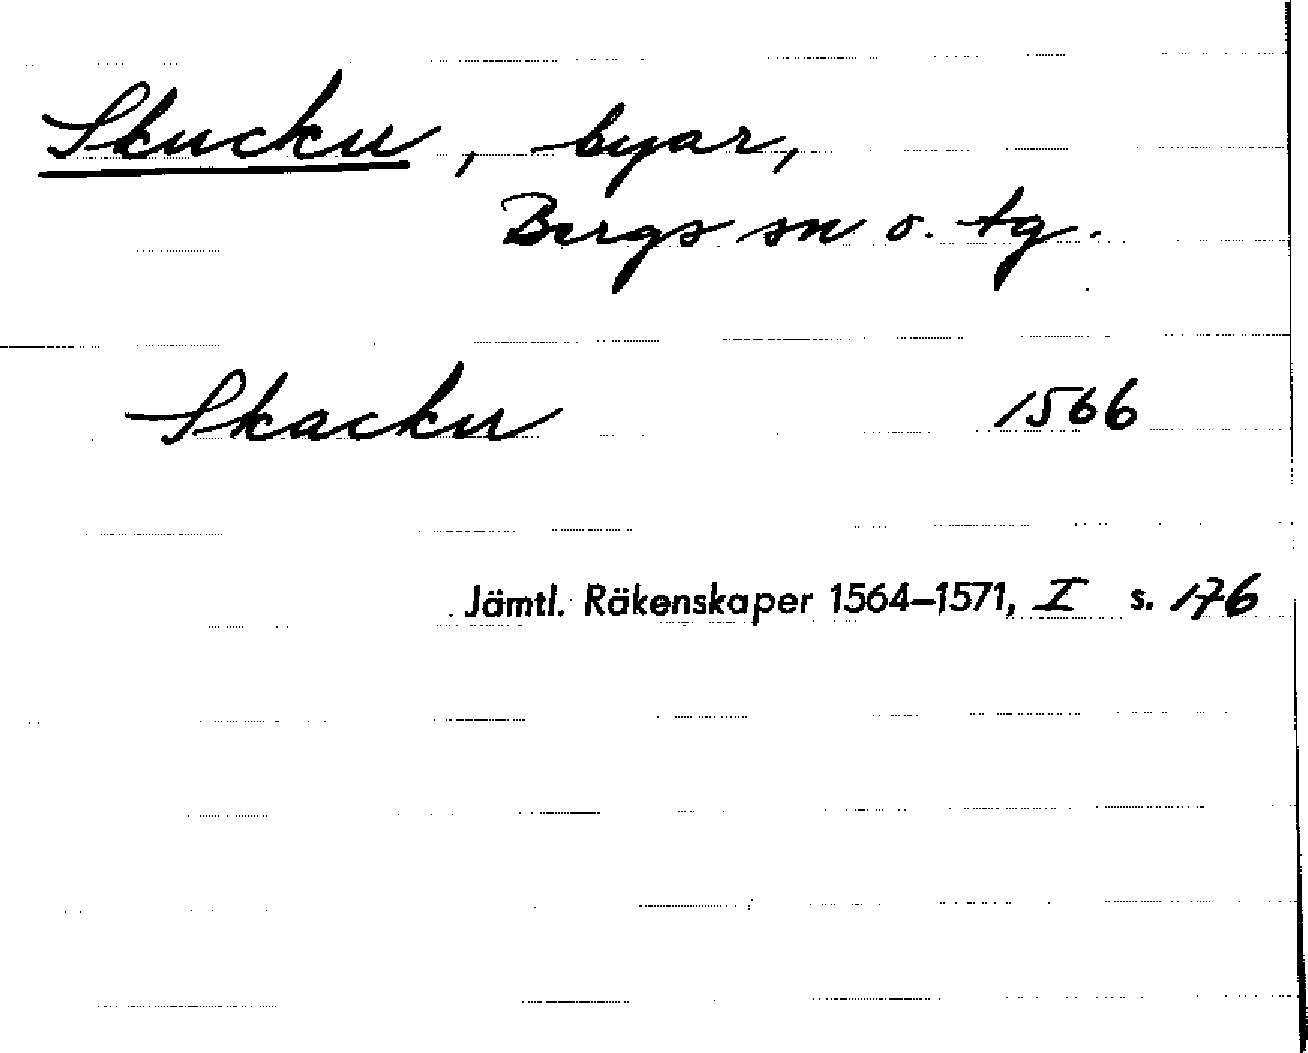 Skucku, byar,
Bergs sn o. tg.
Skacku 1566
Jämtl. Räkenskaper 1564–1571, I s. 176